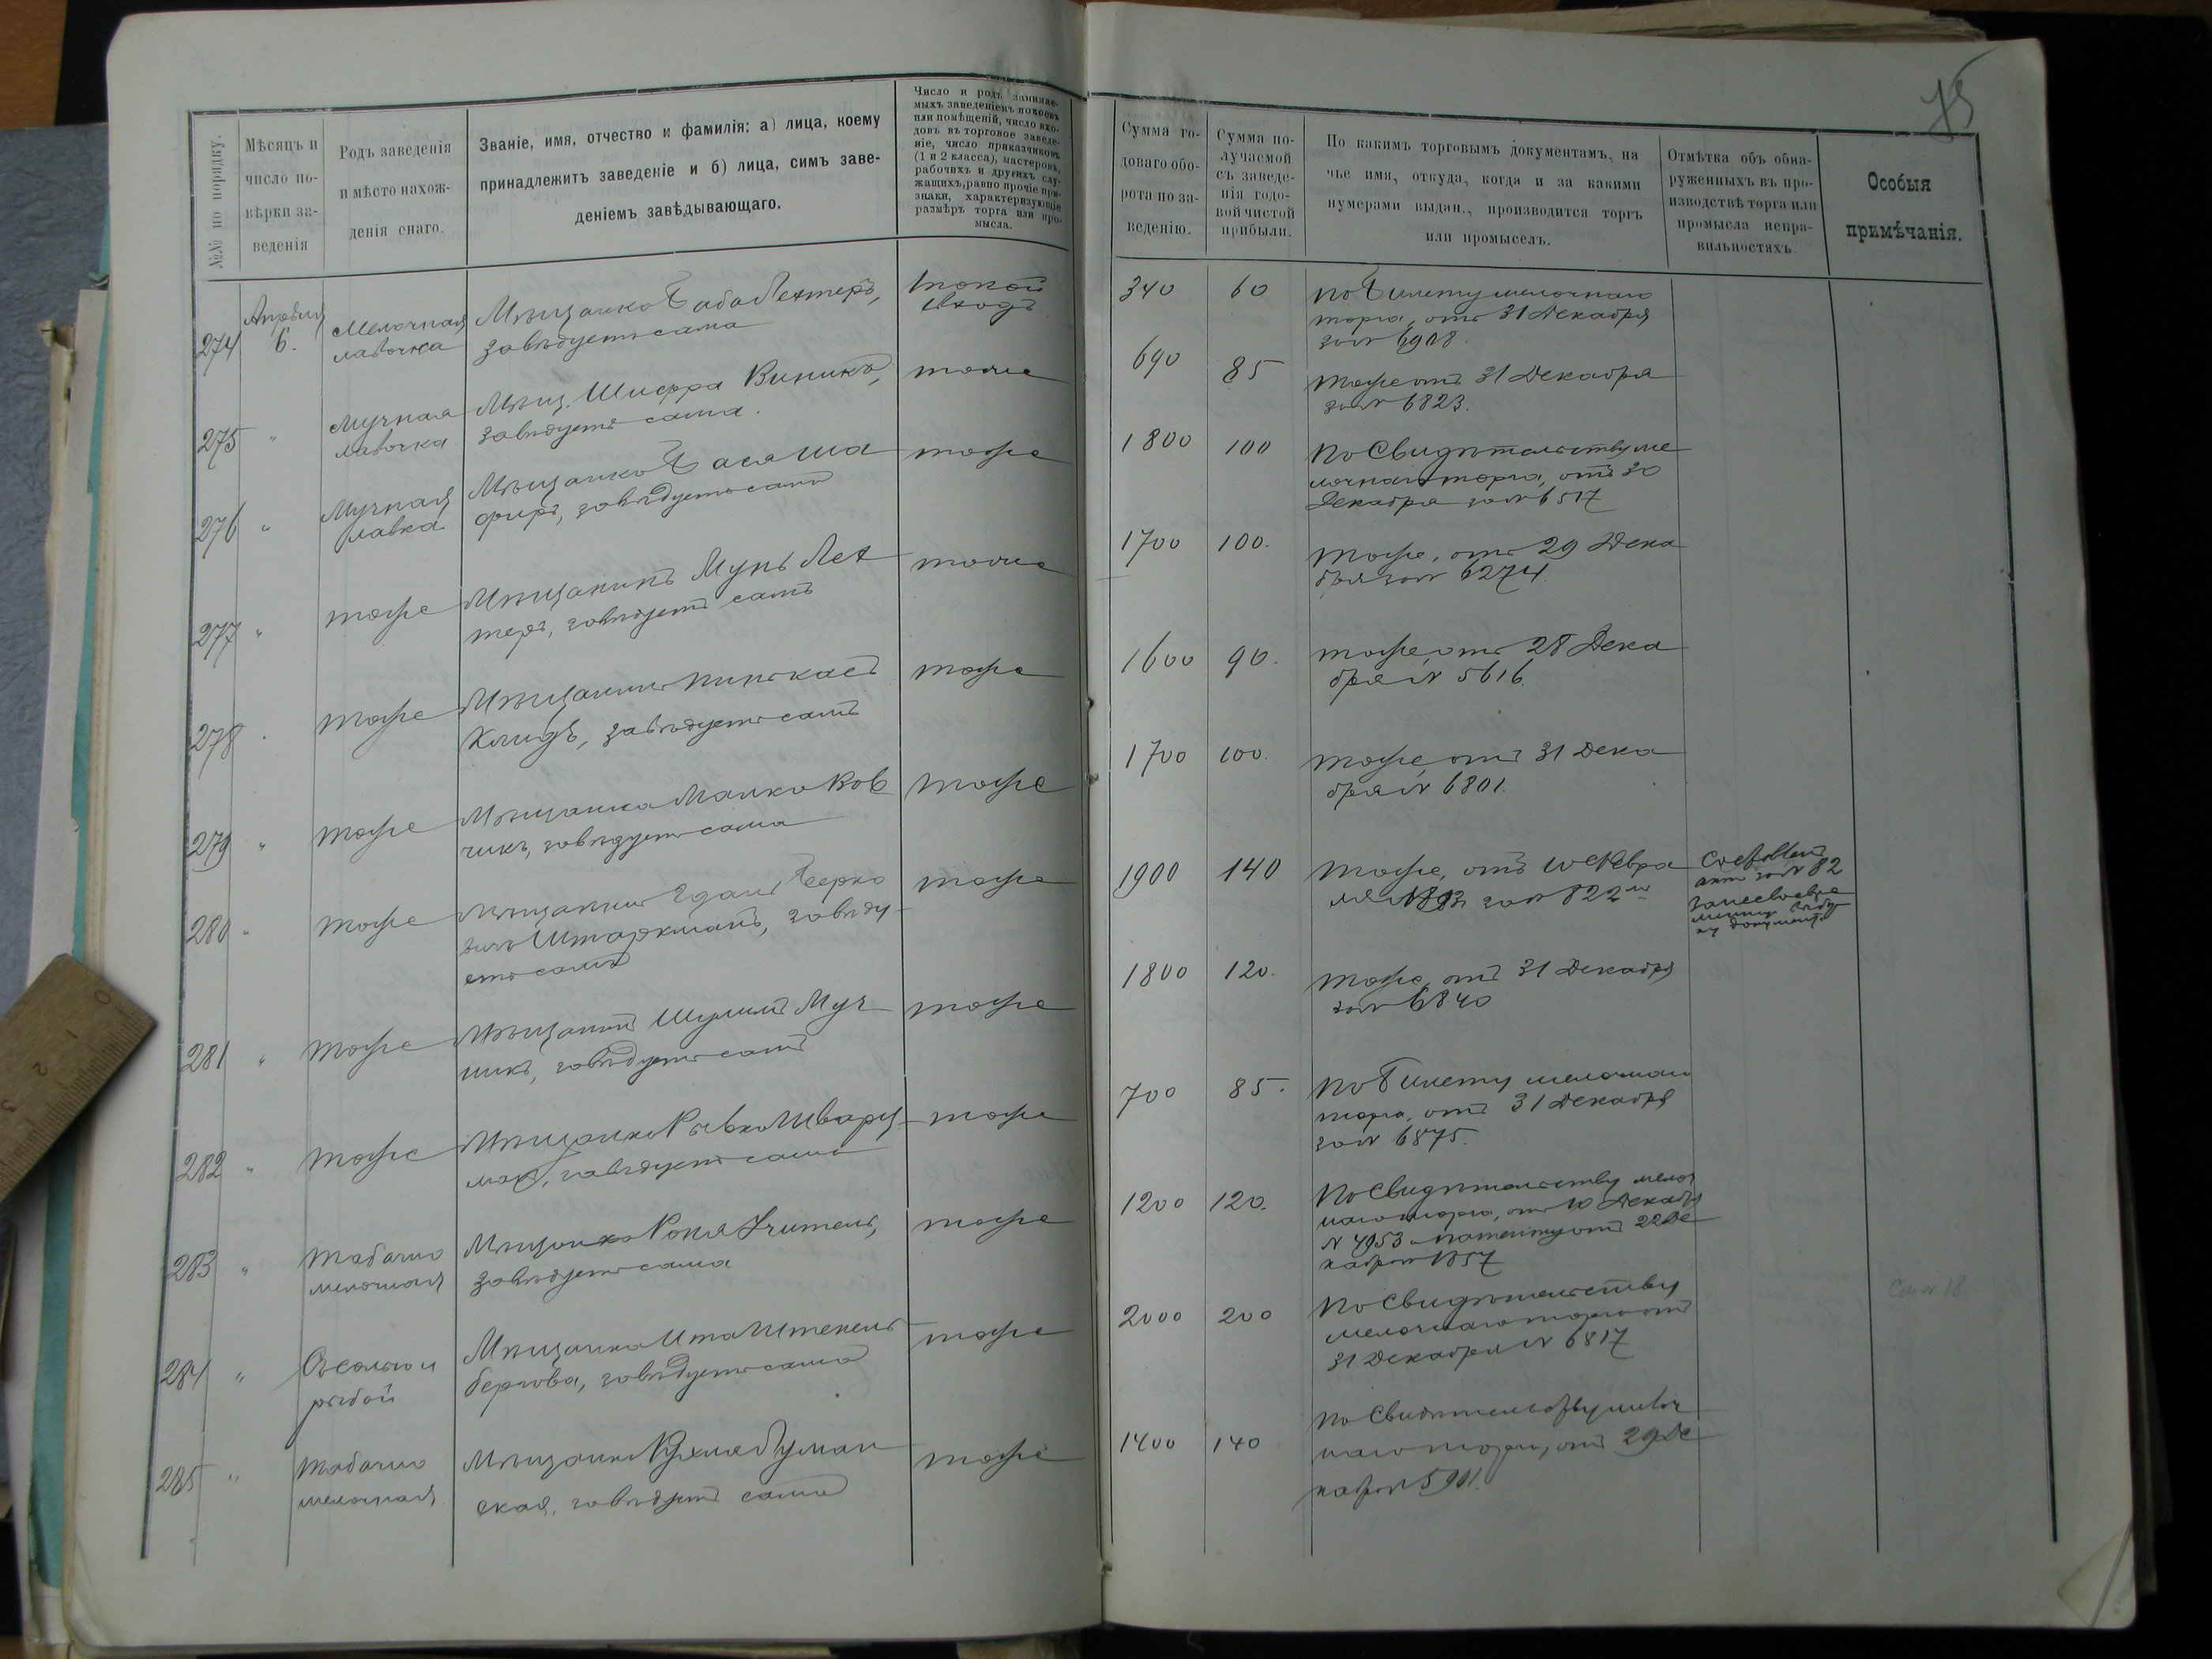 75
№№ по порядку.
Мѣсяцъ и
число по-
вѣрки за-
веденія
Родъ заведенія
и мѣсто нахож-
денія онаго.
Званіе, имя, отчество и фамилія: а) лица, коему
принадлежитъ заведеніе и б) лица, симъ заве-
деніемъ завѣдывающаго.
Число и родъ занимае-
мыхъ заведеніемъ покоевъ
или помѣщеній, число вхо-
довъ въ торговое заведе-
ніе, число приказчиковъ
(1 и 2 класса), мастеровъ,
рабочихъ и другихъ слу-
жащихъ, равно прочіе при-
знаки, характеризующіе
размѣръ торга или про-
мысла.
Сумма го-
доваго обо-
рота по за-
веденію.
Сумма по-
лучаемой
съ заведе-
нія годо-
вой чистой
прибыли.
По какимъ торговымъ документамъ, на
чье имя, откуда, когда и за какими
нумерами выдан., производится торгъ
или промыселъ.
Отмѣтка объ обна-
руженныхъ въ про-
изводствѣ торга или
промысла непра-
вильностяхъ
Особыя
примѣчанія.
274
Апрѣля
6.
Мелочная
лавочка
Мѣщанка Баба Лехтеръ,
завѣдуетъ сама
1 покой
1 входъ
340
60
по билету мелочнаго
торга, отъ 31 Декабря
за № 6908.
275
"
Мучная
лавочка
Мѣщ. Шифра Виникъ,
завѣдуетъ сама.
тоже
690
85
тоже отъ 31 Декабря
за № 6823.
276
"
Мучная
лавка
Мѣщанка Бася Ша
фиръ, завѣдуетъ сама
тоже
1800
100
по Свидѣтельству ме
лочнаго торга, отъ 30
Декабря за № 6517
277
"
тоже
Мѣщанинъ Мунь Лех
теръ, завѣдуетъ самъ
тоже
1700
100.
тоже, отъ 29 Дека
бря за № 6274.
278
тоже
Мѣщанинъ Пинкасъ
завѣдуетъ самъ
тоже
1600
90.
тоже, отъ 28 Дека
бря № 5616.
279
"
тоже
Мѣщанка Малка Ков
чикъ, завѣдуетъ сама
тоже
1700
100.
тоже, отъ 31 Дека
бря № 6801.
280
"
тоже
Мѣщанинъ Берко
вичъ Штаркманъ, завѣду-
етъ самъ
тоже
1900
140
тоже, отъ 10 Февра
ля 1893 за № 822
актъ за № 82
281
"
тоже
Мѣщанинъ Шулимъ Муч
никъ, завѣдуетъ самъ
тоже
1800
120.
тоже, отъ 31 Декабря
за № 6840
282
"
тоже
Мѣщанка Рывка Шварц
манъ, завѣдуетъ сама
тоже
700
85.
по билету мелочнаго
торга, отъ 31 Декабря
за № 6875.
283
"
Табачно
мелочная
Мѣщанка Учитель,
завѣдуетъ сама
тоже
1200
120.
по Свидѣтельству мелоч
наго торга, отъ 10 Декабр
№ 4953 и патенту отъ 22 Де
кабря № 1857
284
"
Съ солью и
рыбой
Мѣщанка Ита Штекель
бергова, завѣдуетъ сама
тоже
2000
200
по Свидѣтельству
мелочнаго торга отъ
31 Декабря № 6817
См № 18
285
"
Табачно
мелочная
Мѣщанка Рухля Луман
ская, завѣдуетъ сама
тоже
1400
140
по Свидѣтельству мелоч
наго торга, отъ 29 Де
кабря 5901.